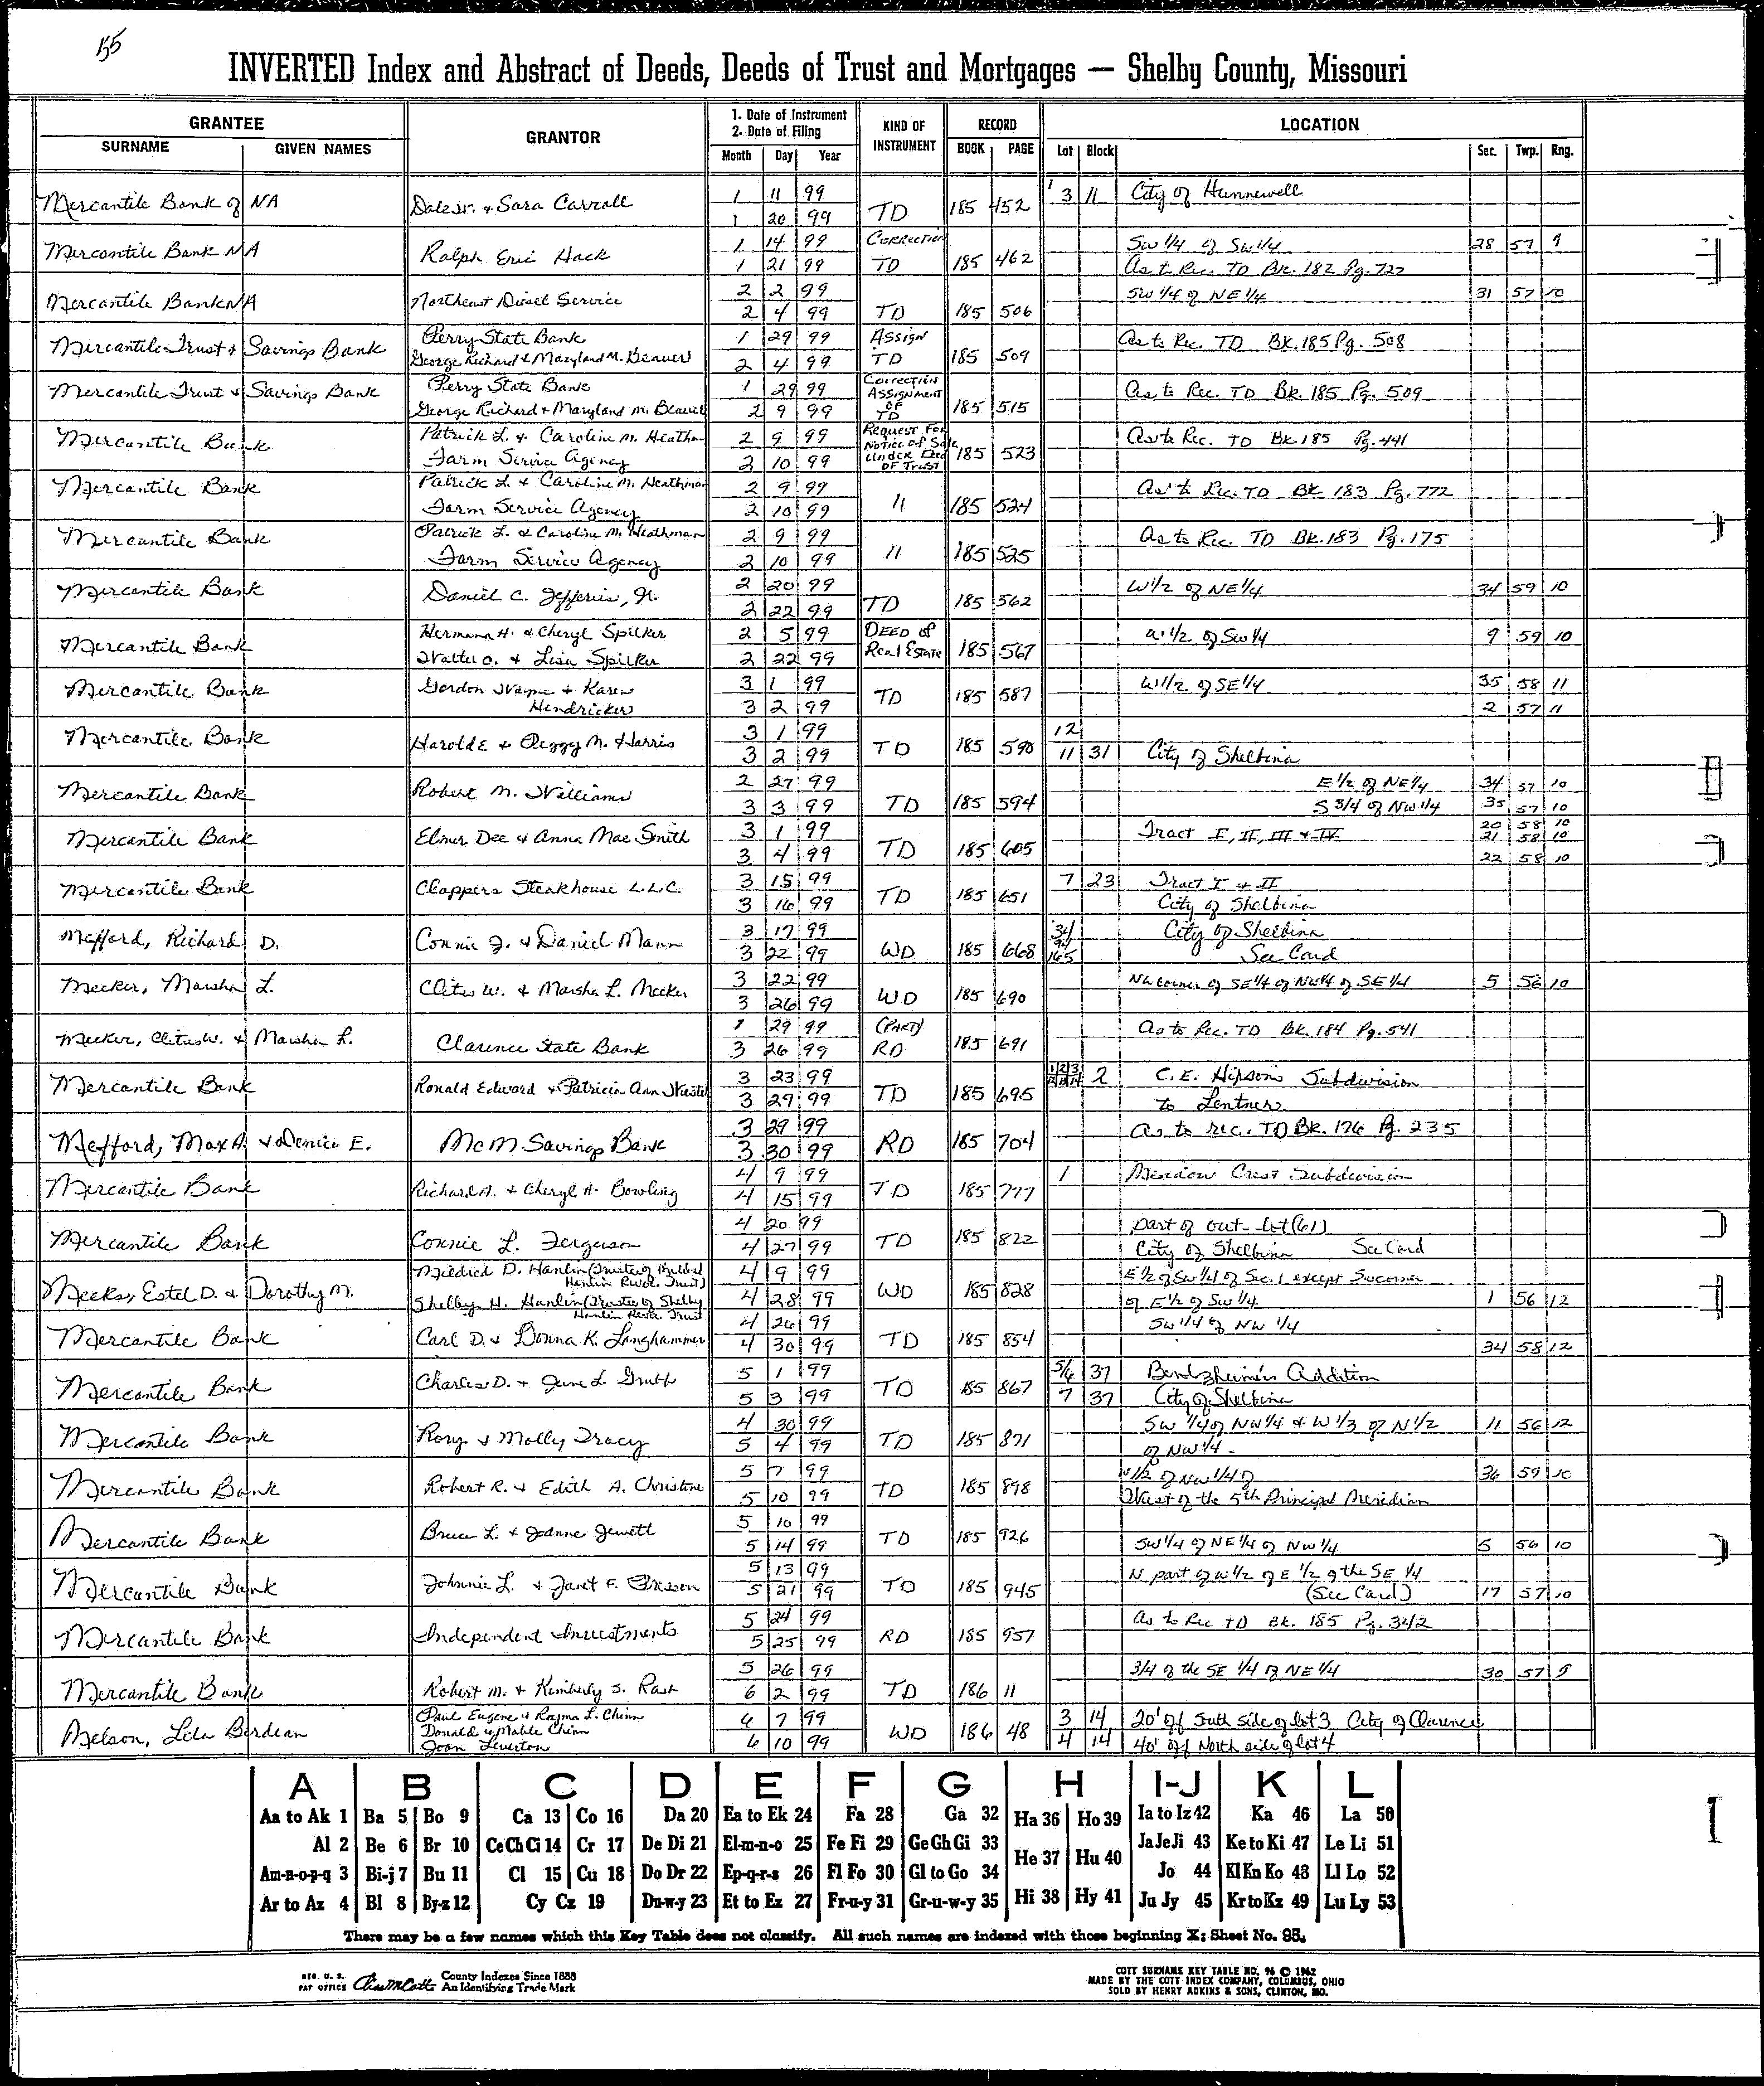 155
INVERTED Index and Abstract of Deeds, Deeds of Trust and Mortgages — Shelby County, Missouri
GRANTEE GRANTOR 1. Date of Instrument 2. Date of Filing KIND OF INSTRUMENT RECORD LOCATION
SURNAME GIVEN NAMES Month Day Year BOOK PAGE Lot Block Sec. Twp. Rng.
Mercantile Bank of NA Dale W. & Sara Carroll 1 11 99 TD 185 452 3 11 City of Hunnewell
1 20 99
Mercantile Bank NA Ralph Eric Hack 1 14 99 Correction TD 185 462 SW 1/4 of SW 1/4 28 57 9
1 21 99 As to Rec. TD Bk. 182 Pg. 722
Mercantile Bank NA Northeast Diesel Service 2 2 99 TD 185 506 SW 1/4 of NE 1/4 31 57 10
2 4 99
Mercantile Trust & Savings Bank Perry State Bank 1 29 99 Assign TD 185 509 As to Rec. TD Bk. 185 Pg. 508
George Richard & Maryland M. Beauer 2 4 99
Mercantile Trust & Savings Bank Perry State Bank 1 29 99 Correction Assignment OF TD 185 515 As to Rec. TD Bk. 185 Pg. 509
George Richard & Maryland M. 2 9 99
Mercantile Bank Patrick L. & Caroline M. Heathman 2 9 99 Request For Notice of Sale Under Deed OF Trust 185 523 As to Rec. TD Bk. 185 Pg. 441
Farm Service Agency 2 10 99
Mercantile Bank Patrick L. & Caroline M. Heathman 2 9 99 11 185 524 As to Rec. TD Bk 183 Pg. 772
Farm Service Agency 2 10 99
Mercantile Bank Patrick L. & Caroline M. Heathman 2 9 99 11 185 525 As to Rec. TD Bk. 183 Pg. 175
Farm Service Agency 2 10 99
Mercantile Bank Daniel C. Jefferis, Jr. 2 20 99 TD 185 562 W 1/2 of NE 1/4 34 59 10
2 22 99
Mercantile Bank Hermann H. & Cheryl Spilker 2 5 99 DEED of Real Estate 185 567 W 1/2 of SW 1/4 9 59 10
Walter O. & Lisa Spilker 2 22 99
Mercantile Bank Gordon Wayne & Karen 3 1 99 TD 185 587 W 1/2 of SE 1/4 35 58 11
Hendricker 3 2 99 2 57 11
Mercantile Bank Harold E & Peggy M. Harris 3 1 99 TD 185 590 12
3 2 99 11 31 City of Shelbina
Mercantile Bank Robert M. Williams 2 27 99 TD 185 594 E 1/2 of NE 1/4 34 57 10
3 3 99 S 3/4 of NW 1/4 35 57 10
Mercantile Bank Elmer Dee & Anna Mae Smith 3 1 99 TD 185 605 Tract I, II, III & IV 20 58 10
21 58 10
3 4 99 22 58 10
Mercantile Bank Clappers Steakhouse L.L.C. 3 15 99 TD 185 651 7 23 Tract I & II
3 16 99 City of Shelbina
Mefford, Richard D. Connie J. & Daniel Mann 3 17 99 WD 185 668 City of Shelbina
3 22 99 See Card
Meeker, Marsha L. Clitus W. & Marsha L. Meeker 3 22 99 WD 185 690 NW corner of SE 1/4 of NW 1/4 of SE 1/4 5 56 10
3 26 99
Meeker, Clitus W. & Marsha L. Clarence State Bank 1 29 99 (PART) RD 185 691 As to Rec. TD Bk. 184 Pg. 541
3 26 99
Mercantile Bank Ronald Edward & Patricia Ann 3 23 99 TD 185 695 1 2 3 2 C.E. Hipson's Subdivision
3 29 99 to Lentner
Mefford, Max A. & Denice E. McM Savings Bank 3 29 99 RD 185 704 As to rec. TD Bk. 176 Pg. 235
3 30 99
Mercantile Bank Richard A. & Cheryl A. Bowling 4 9 99 TD 185 777 1 Meadow Crest Subdivision
4 15 99
Mercantile Bank Connie L. Ferguson 4 20 99 TD 185 822 part of out-lot (61)
4 27 99 City of Shelbina See Card
Meeks, Estel D. & Dorothy M. Mildred D. Hanlin (Trustee of Mildred Hanlin Revoc. Trust) 4 9 99 WD 185 828 E 1/2 of SW 1/4 of Sec. 1 except SW corner
Shelby H. Hanlin (Trustee of Shelby Hanlin Revoc Trust 4 28 99 of E 1/2 of SW 1/4 1 56 12
Mercantile Bank Carl D. & Donna K. Langhammer 4 26 99 TD 185 854 SW 1/4 of NW 1/4
4 30 99 34 58 12
Mercantile Bank Charles D. & June L. Grubb 5 1 99 TD 185 867 5/6 37 Bendzheimer's Addition
5 3 99 7 37 City of Shelbina
Mercantile Bank Rory & Molly Tracy 4 30 99 TD 185 871 SW 1/4 of NW 1/4 & W 1/3 of N 1/2 11 56 12
5 4 99 of NW 1/4
Mercantile Bank Robert R. & Edith A. Christine 5 7 99 TD 185 898 W 1/2 of NW 1/4 of 36 59 10
5 10 99 West of the 5th Principal Meridian
Mercantile Bank Bruce L. & Joanne Jewett 5 10 99 TD 185 926
5 14 99 SW 1/4 of NE 1/4 of NW 1/4 5 56 10
Mercantile Bank Johnnie L. & Janet F. 5 13 99 TD 185 945 N part of W 1/2 of E 1/2 of the SE 1/4
5 21 99 (See Card) 17 57 10
Mercantile Bank Independent Investments 5 24 99 RD 185 957 As to Rec TD Bk. 185 Pg. 342
5 25 99
Mercantile Bank Robert M. & Kimberly S. Rash 5 26 99 TD 186 11 3/4 of the SE 1/4 of NE 1/4 30 57 9
6 2 99
Melson, Lila Berdean Paul Eugene & Rayma L. Chinn 6 7 99 WD 186 48 3 14 20' off South side of lot 3 City of Clarence
Donald & Mable Chinn
Joan Liverton 6 10 99 4 14 40' off North side of lot 4
A B C D E F G H I-J K L
Aa to Ak 1 Ba 5 Bo 9 Ca 13 Co 16 Da 20 Ea to Ek 24 Fa 28 Ga 32 Ha 36 Ho 39 Ia to Iz 42 Ka 46 La 50
Al 2 Be 6 Br 10 Ce Ch Ci 14 Cr 17 De Di 21 El-m-n-o 25 Fe Fi 29 Ge Gh Gi 33 He 37 Hu 40 Ja Je Ji 43 Ke to Ki 47 Le Li 51
Am-n-o-p-q 3 Bi-j 7 Bu 11 Cl 15 Cu 18 Do Dr 22 Ep-q-r-s 26 Fl Fo 30 Gl to Go 34 Jo 44 Kl Kn Ko 48 Ll Lo 52
Ar to Az 4 Bl 8 By-z 12 Cy Cz 19 Du-w-y 23 Et to Ez 27 Fr-u-y 31 Gr-u-w-y 35 Hi 38 Hy 41 Ju Jy 45 Kr to Kz 49 Lu Ly 53
There may be a few names which this Key Table does not classify. All such names are indexed with those beginning X; Sheet No. 95.
REG. U. S. PAT OFFICE County Indexes Since 1888 An Identifying Trade Mark
COTT SURNAME KEY TABLE NO. 96 © 1962
MADE BY THE COTT INDEX COMPANY, COLUMBUS, OHIO
SOLD BY HENRY ADKINS & SONS, CLINTON, MO.